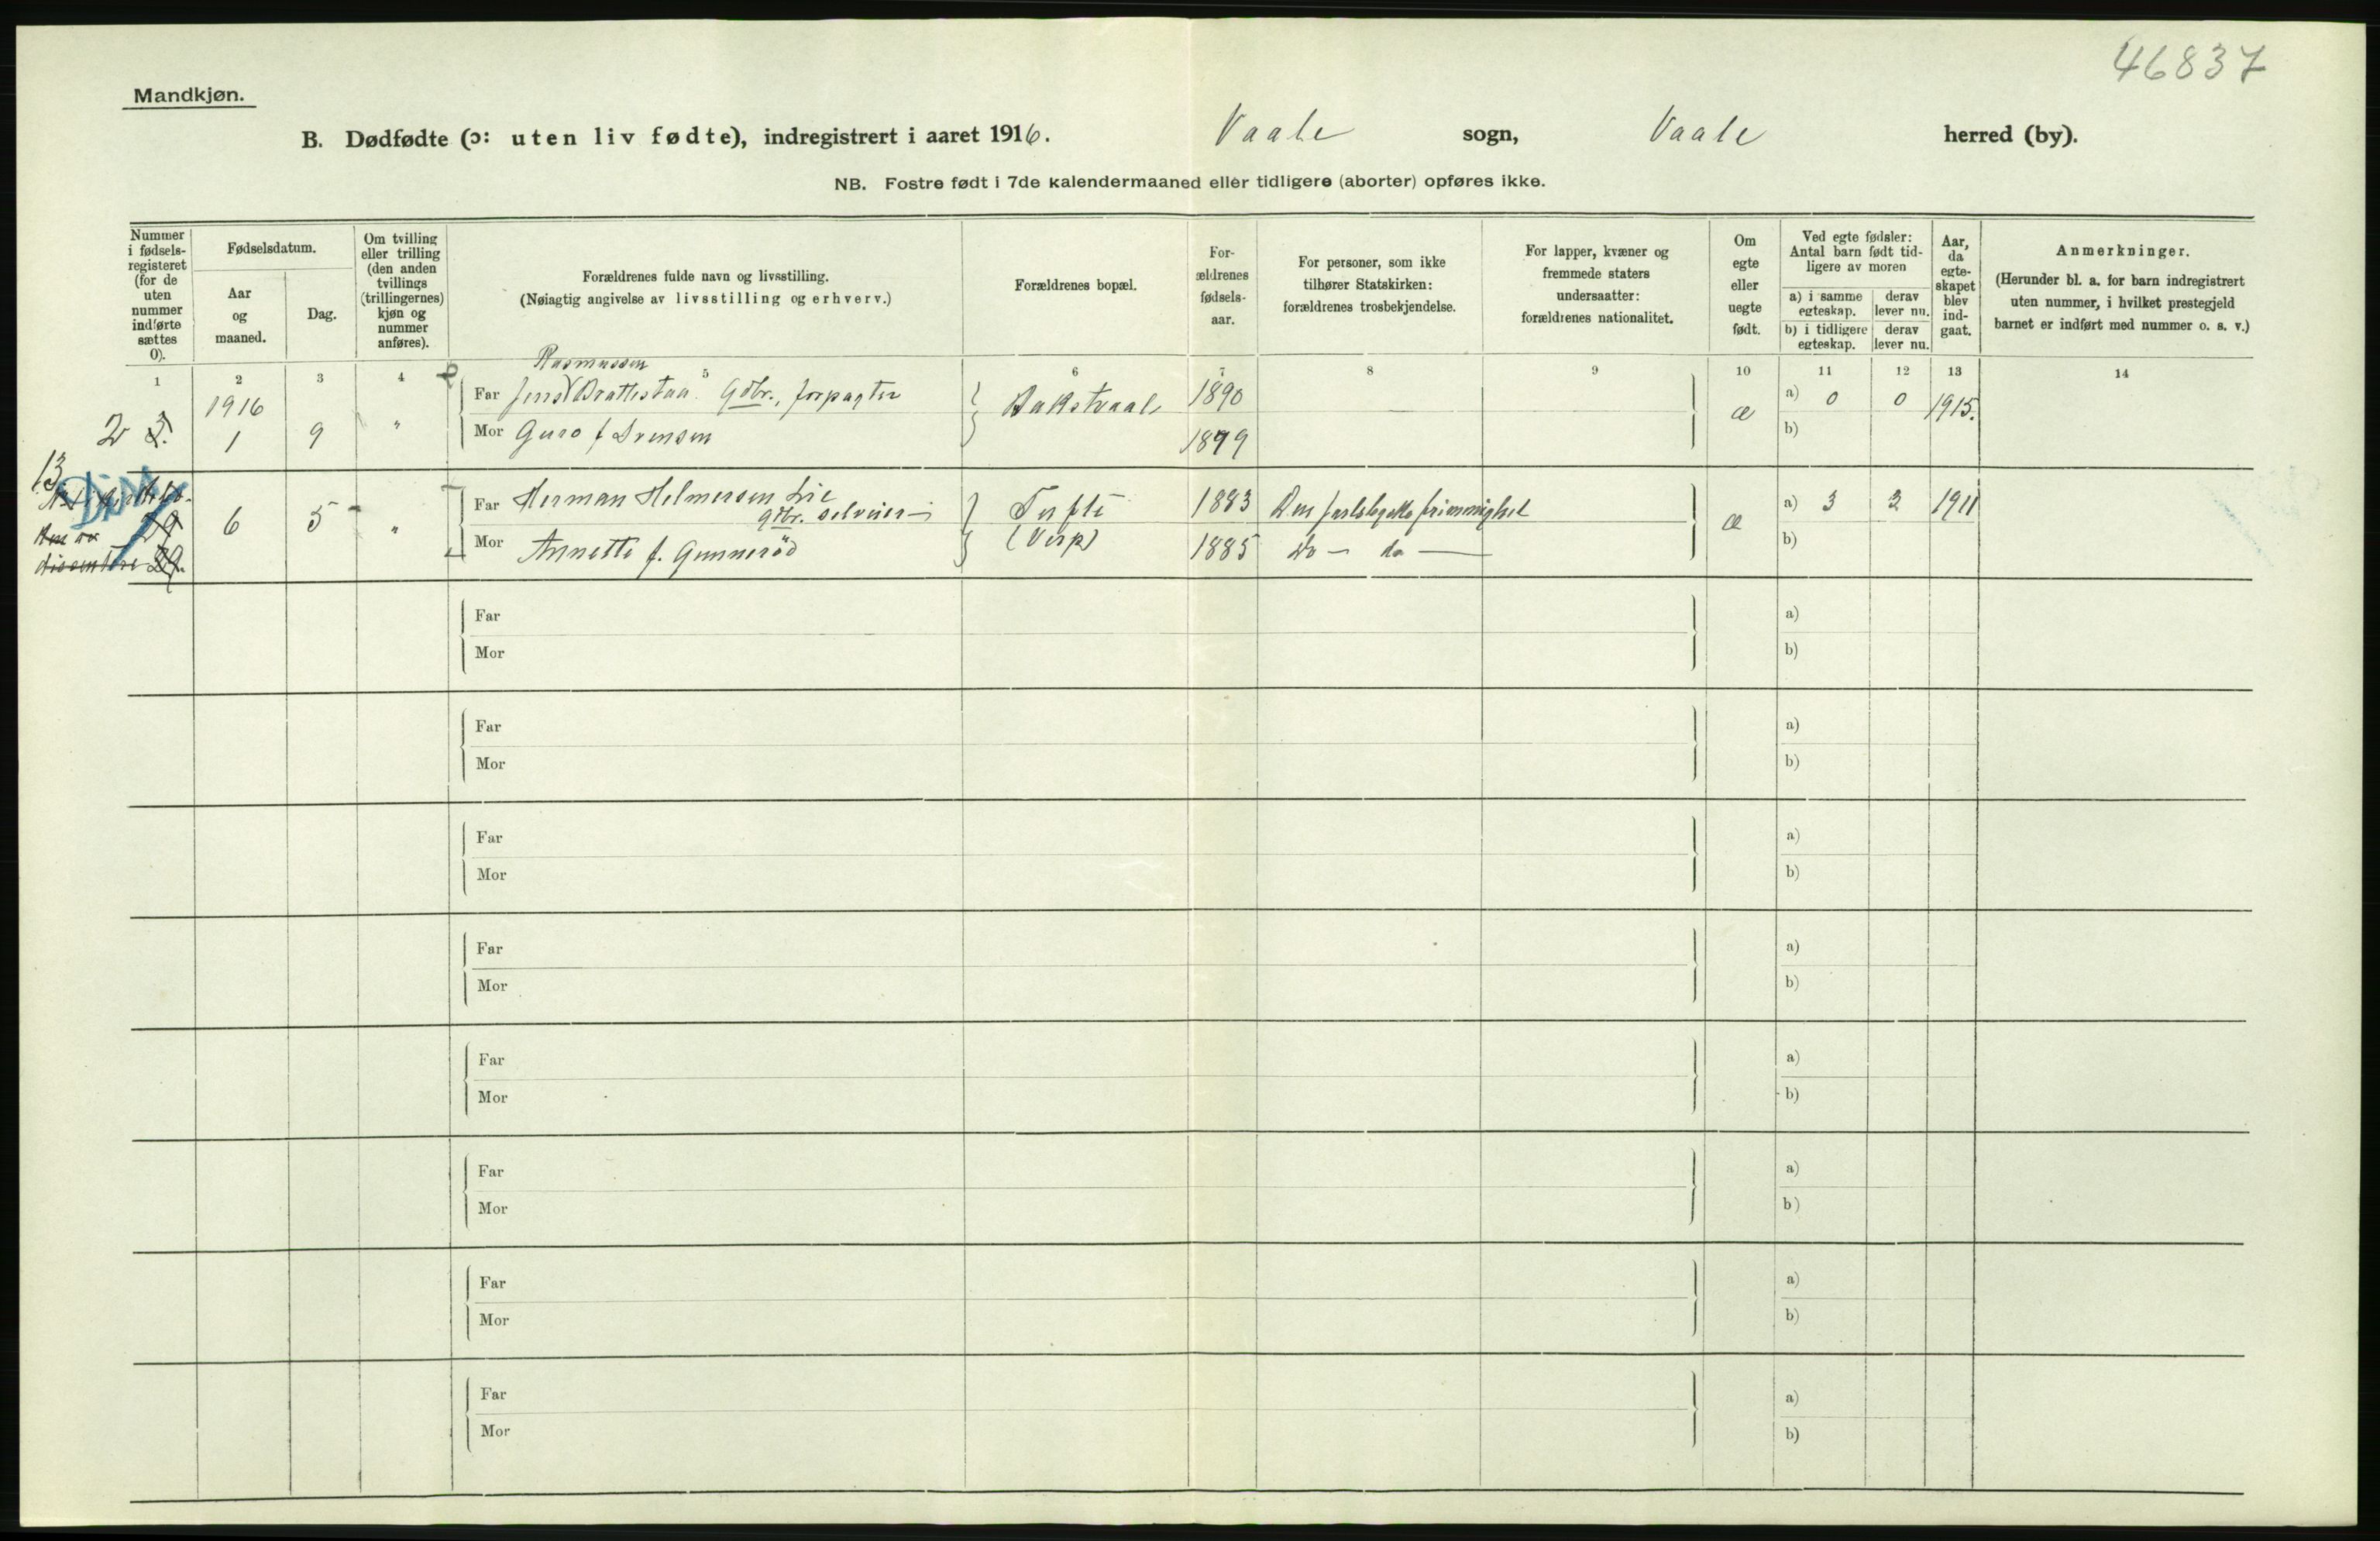 46837
Mandkjøn.
B. Dødfødte (ɔ: uten liv fødte), indregistrert i aaret 1916. Vaale sogn, Vaale herred (by).
NB. Fostre født i 7de kalendermaaned eller tidligere (aborter) opføres ikke.
Nummer
i fødsels-
registeret
(for de
uten
nummer
indførte
sættes
0).
Fødselsdatum.
Aar
og
maaned.
Dag.
Om tvilling
eller trilling
(den anden
tvillings
(trillingernes)
kjøn og
nummer
anføres).
Forældrenes fulde navn og livsstilling.
(Nøiagtig angivelse av livsstilling og erhverv.)
Forældrenes bopæl.
For-
ældrenes
fødsels-
aar.
For personer, som ikke
tilhører Statskirken:
forældrenes trosbekjendelse.
For lapper, kvæner og
fremmede staters
undersaatter:
forældrenes nationalitet.
Om
egte
eller
uegte
født.
Ved egte fødsler:
Antal barn født tid-
ligere av moren
a) i samme
egteskap.
derav
lever nu.
b) i tidligere
egteskap.
derav
lever nu.
Aar,
da
egte-
skapet
blev
ind-
gaat.
Anmerkninger.
(Herunder bl. a. for barn indregistrert
uten nummer, i hvilket prestegjeld
barnet er indført med nummer o. s. v.)
1 2 3 4 5 6 7 8 9 10 11 12 13 14
Rasmussen
1916 Far Jens Brattestaa Gdbr., forpagter 1890 a) 0 0 1915.
2 3. 1 9 " Mor Guro f Svensen 1899 æ b)
13
Far Herman Helmersen Lie Tufte 1883 a) 3 3 1911
gdbr. selveier
29 6 5 " (Virp) æ
Mor Annette f. Gunnerød 1885 Do — do — b)
dissentere 29.
Far a)
Mor b)
Far a)
Mor b)
Far a)
Mor b)
Far a)
Mor b)
Far a)
Mor b)
Far a)
Mor b)
Far a)
Mor b)
Far a)
Mor b)